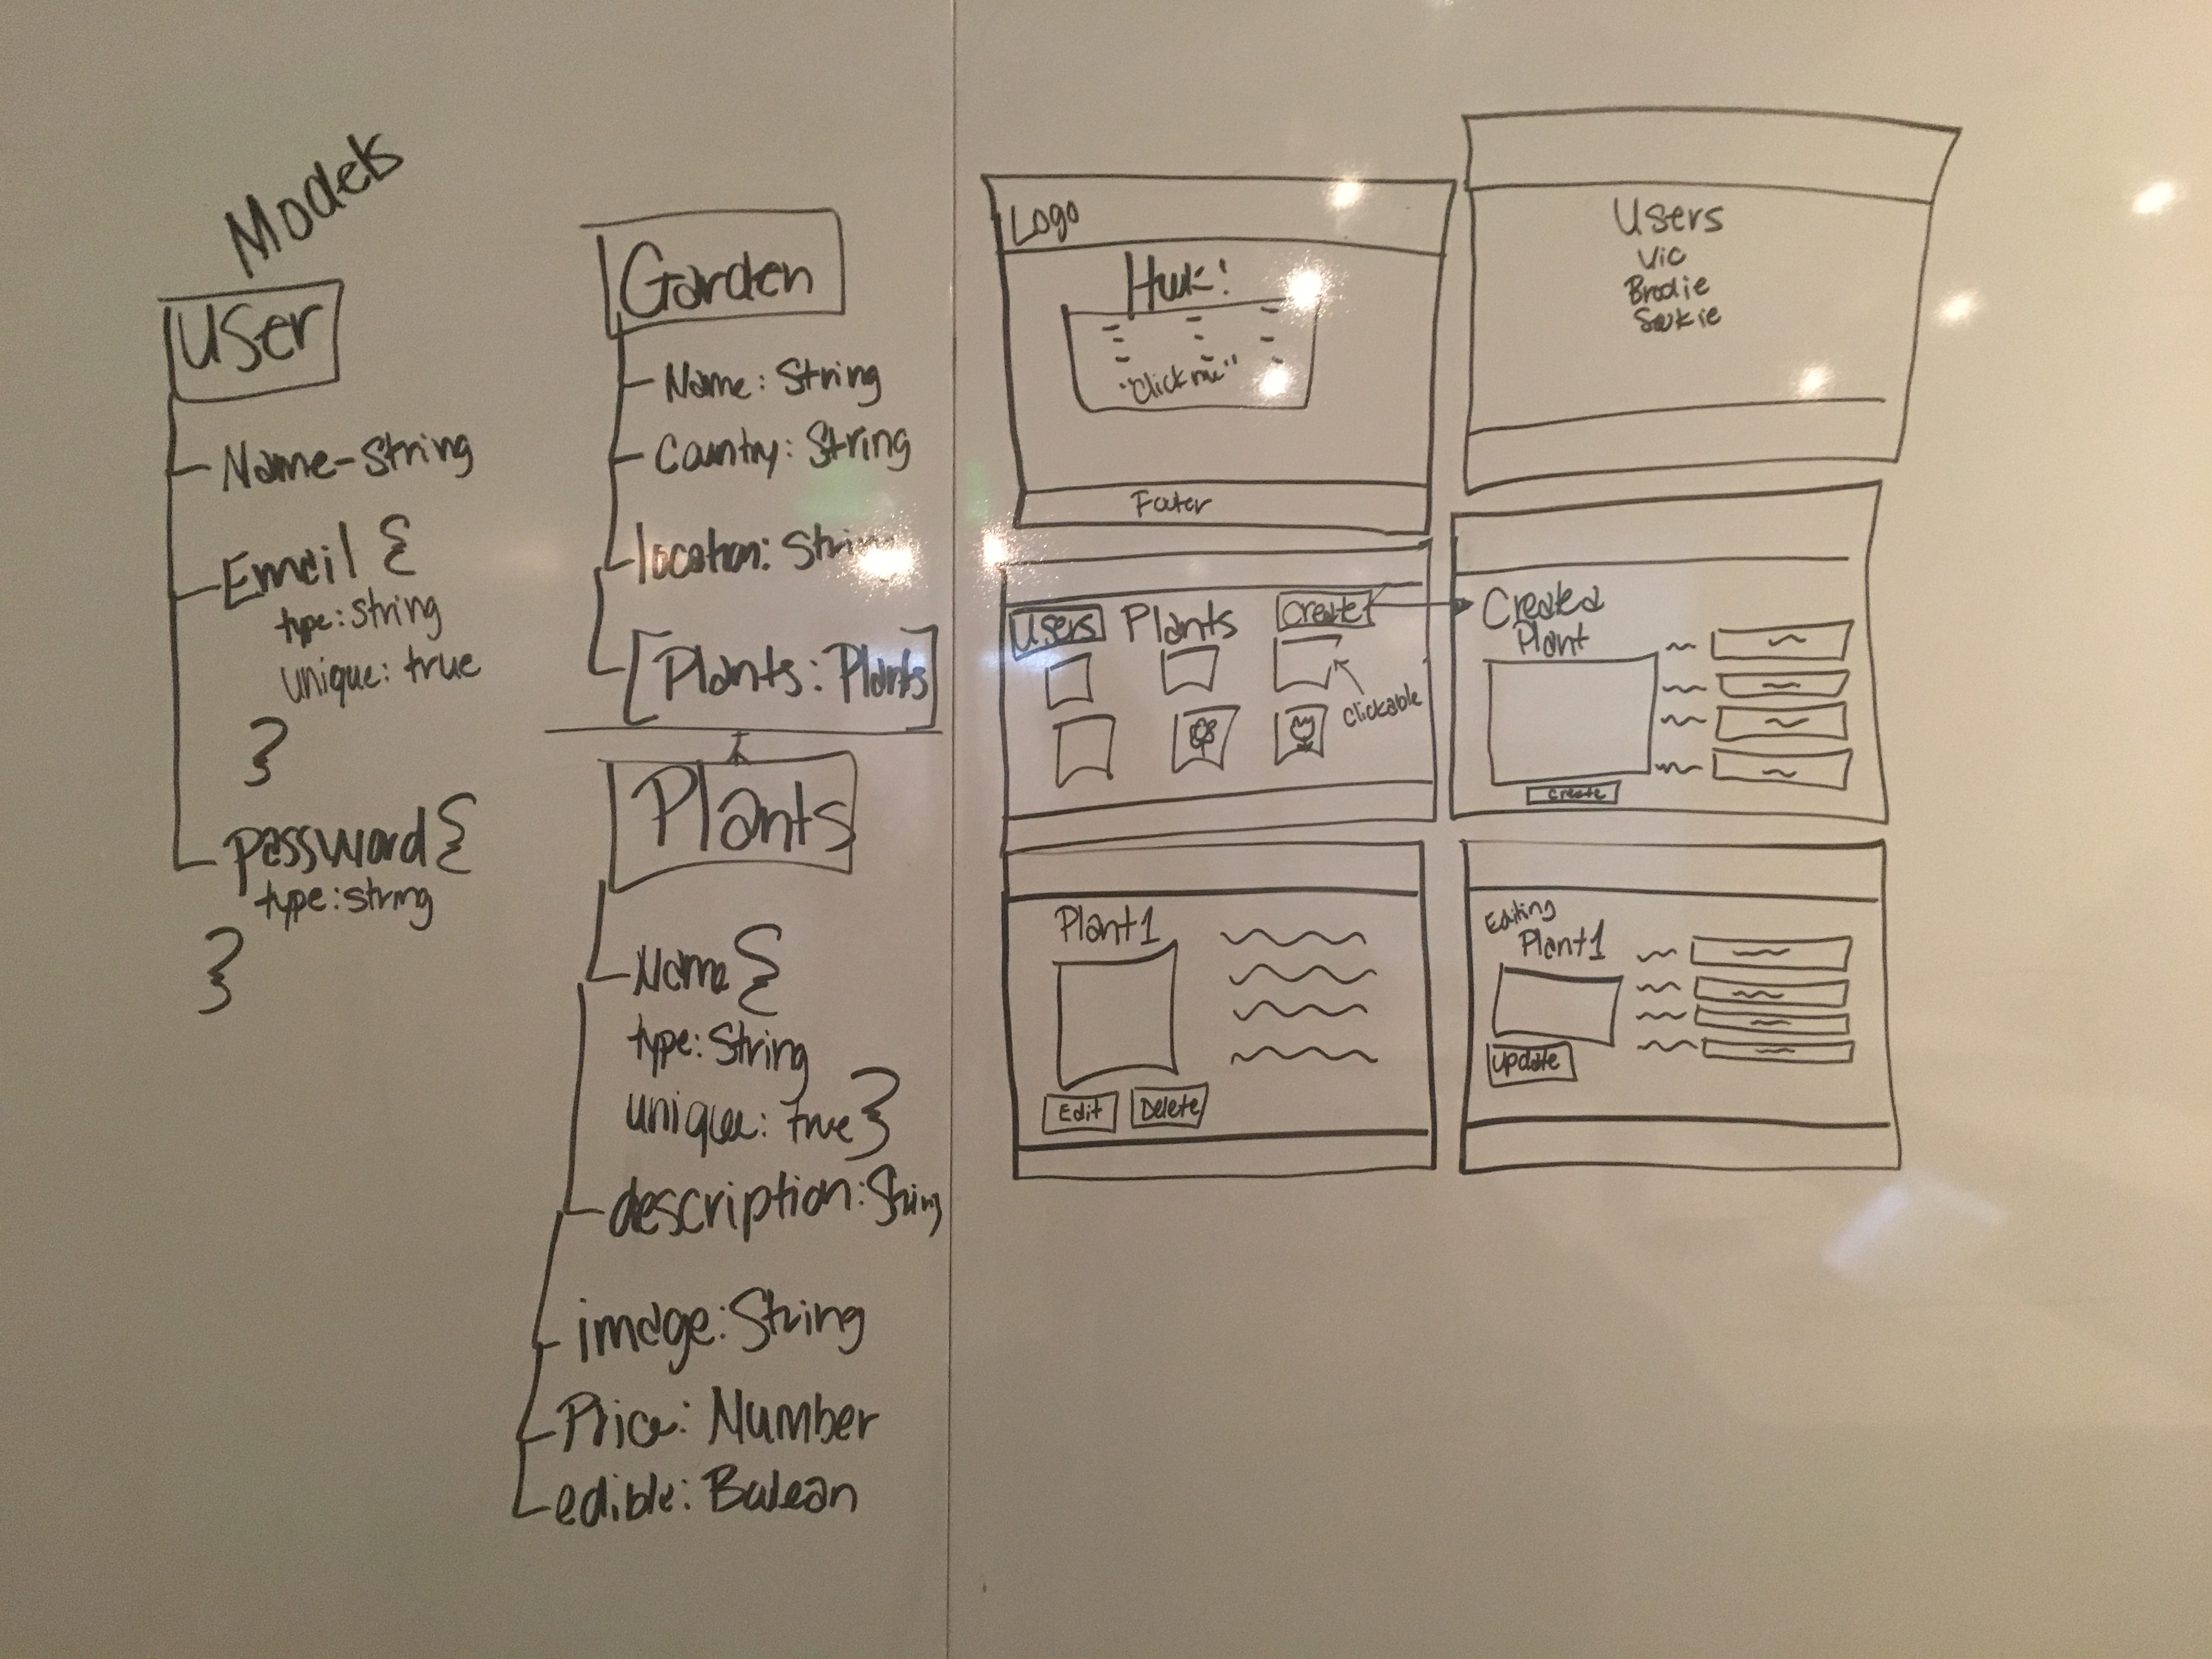 Models
User
Name-String
Email {
type: String
unique: true
}
password {
type: string
}
Garden
Name: String
Country: String
location: String
[Plants: Plants]
Plants
Name {
type: String
unique: true }
description: String
image: String
Price: Number
edible: Bulean
Logo
"Click me"
Footer
Users
Vic
Brodie
Users
Plants
Create
Clickable
Created
Plant
Create
Plant1
Edit
Delete
Editing
Plant1
Update